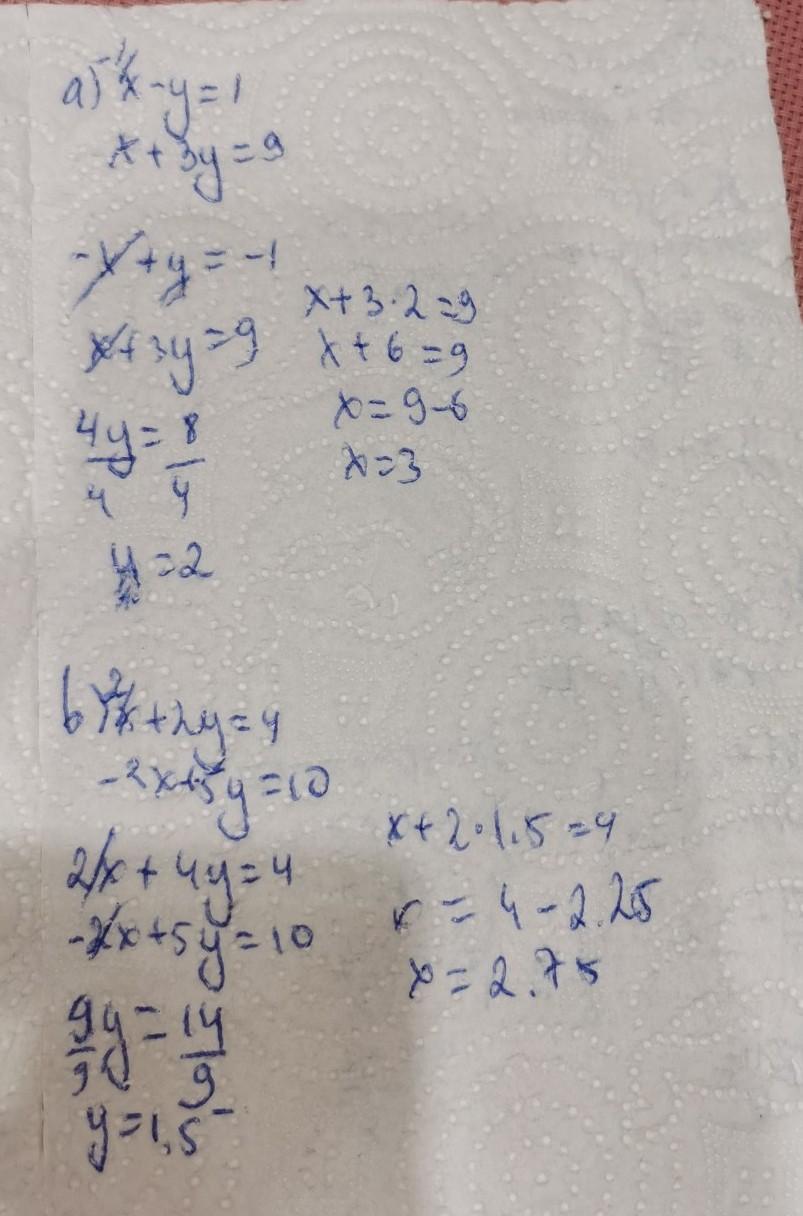 a) -1/ x-y=1
x+3y=9
-x+y=-1
x+3y=9
4y = 8
4 4
y=2
x+3·2=9
x+6=9
x=9-6
x=3
b) 2/ x+2y=4
-2x+5y=10
2x+4y=4
-2x+5y=10
9y = 14
9 9
y=1,5
x+2·1.5=4
x=4-2.25
x=2.75